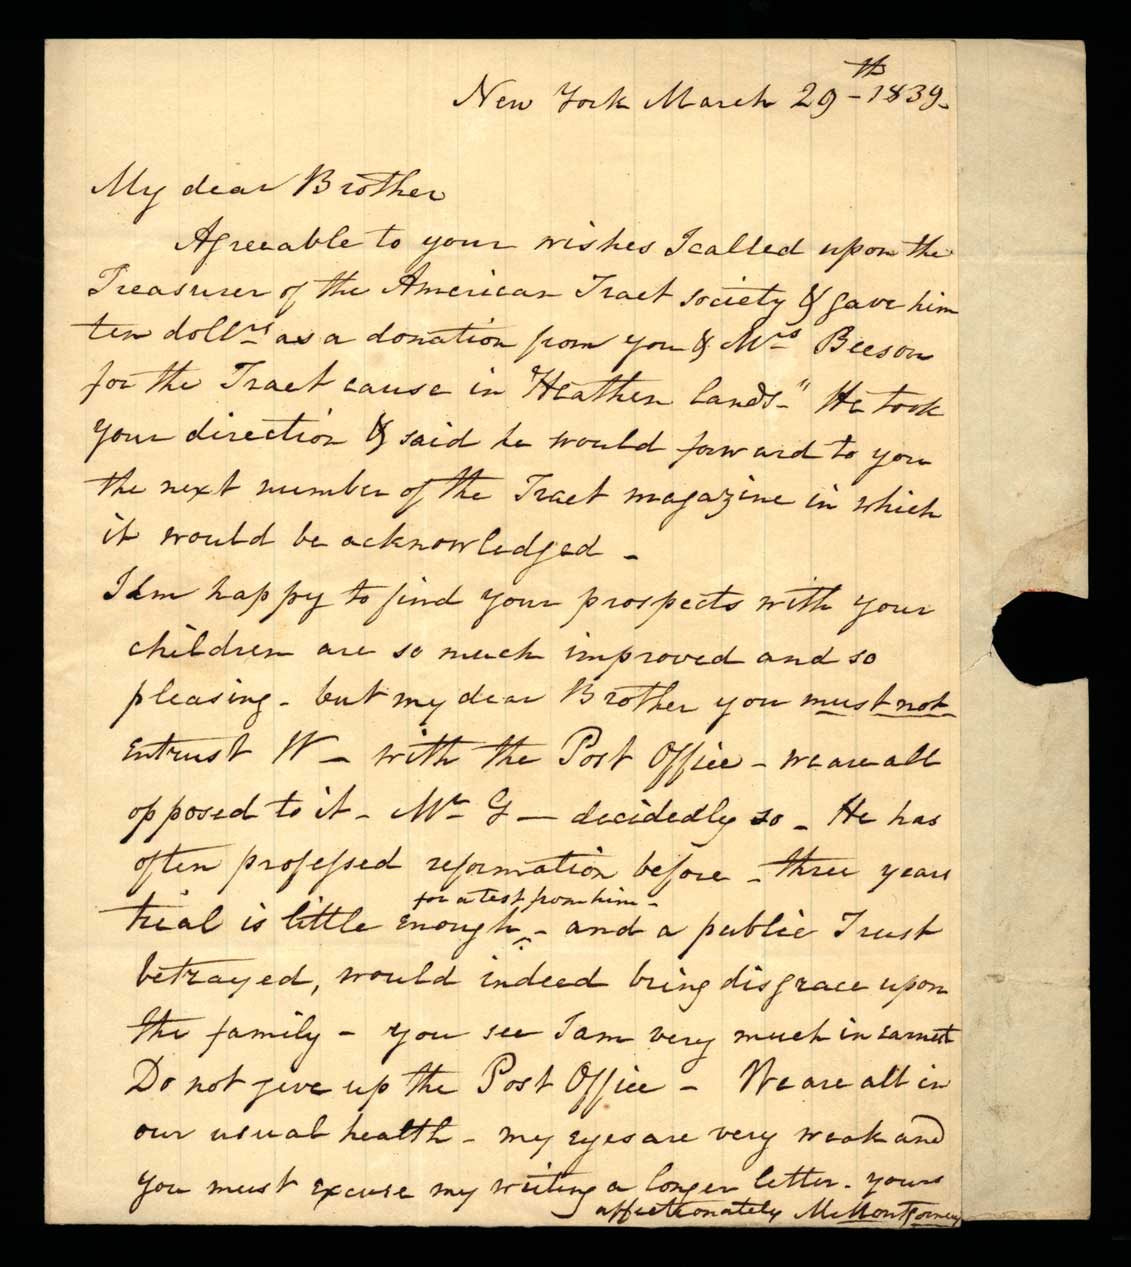 New York March 29th - 1839.
My dear Brother
Agreeable to your wishes I called upon the
Treasurer of the American Tract society & gave him
ten dollrs as a donation from you & Mrs Beeson
for the Tract cause in "Heathen lands." He took
your direction & said he would forward to you
the next number of the Tract magazine in which
it would be acknowledged -
I am happy to find your prospects with your
children are so much improved and so
pleasing - but my dear Brother you must not
entrust W - with the Post Office - we are all
opposed to it - Mr G - decidedly so - He has
often professed reformation before - three years
for a test from him -
trial is little enough ^ - and a public Trust
betrayed, would indeed bring disgrace upon
the family - you see I am very much in earnest
Do not give up the Post Office - We are all in
our usual health - my eyes are very weak and
you must excuse my writing a longer letter - yours
affectionately M Montgomery